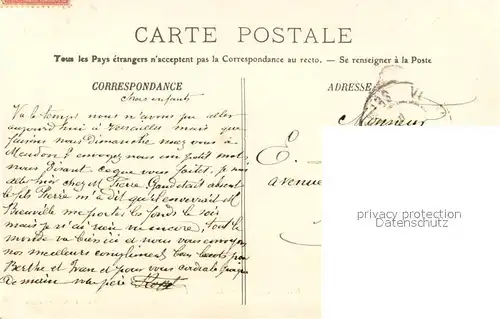 CARTE POSTALE
Tous les Pays étrangers n'acceptent pas la Correspondance au recto. — Se renseigner à la Poste
CORRESPONDANCE
Chers enfants
Vu le temps nous n'avons pu aller
aujourd'hui à Versailles mais que
faisons nous Dimanche irez vous à
Meudon? envoyez nous un petit mot
nous disant ce que vous faites. Je suis
allé hier chez M. Pierre Gaudet était absent
le fils Pierre m'a dit qu'il enverrait M
me porter les fonds le soir
mais je n'ai rien vu encore. tout le
monde va bien ici et nous vous envoyons
nos meilleurs compliments bons baisers pour
Berthe et Ivan et pour vous cordiale
Demain votre père
ADRESSE
Monsieur
E.
avenue
privacy protection
Datenschutz